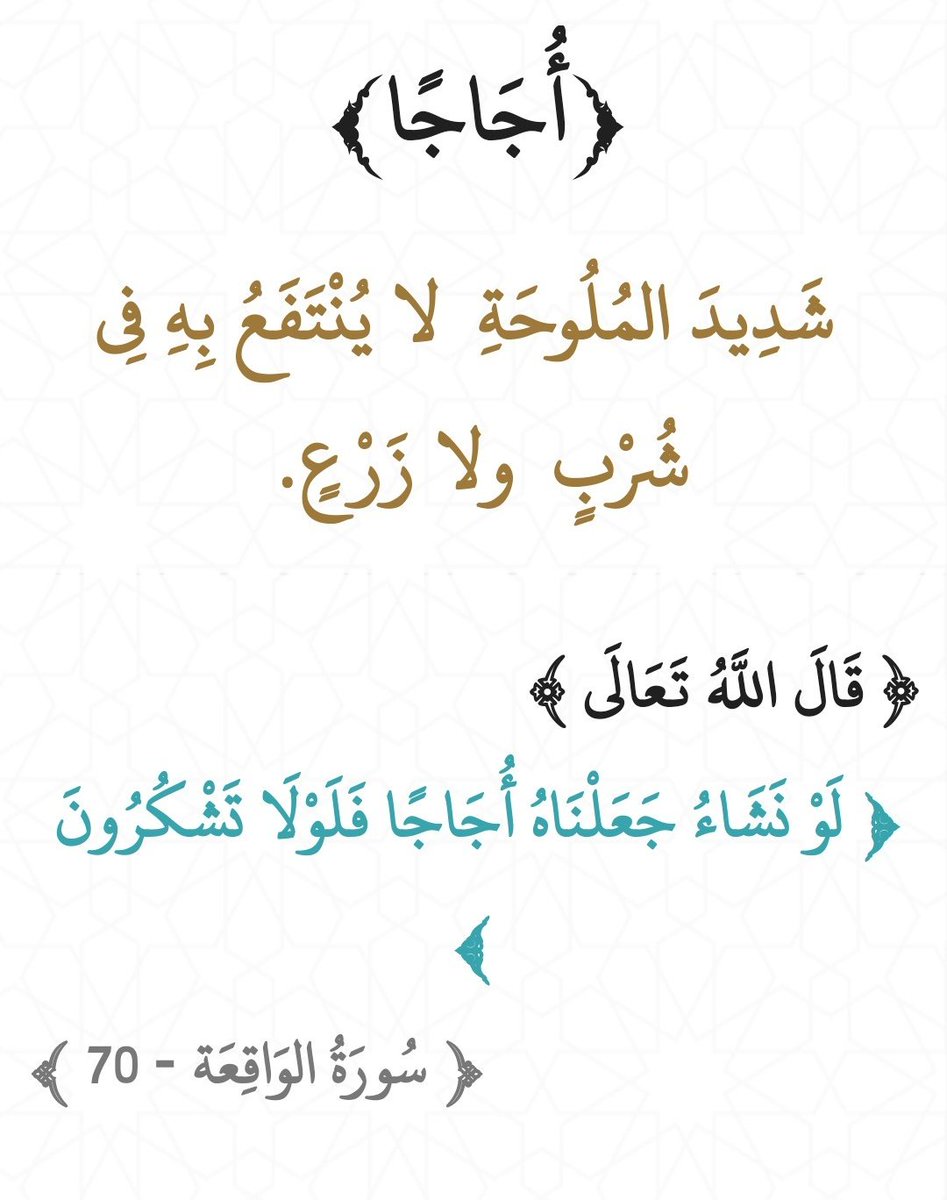 ﴿أُجَاجًا﴾
شَدِيدَ المُلُوحَةِ لا يُنْتَفَعُ بِهِ فِى
شُرْبٍ ولا زَرْعٍ.
﴿ قَالَ اللَّهُ تَعَالَى ﴾
﴿ لَوْ نَشَاءُ جَعَلْنَاهُ أُجَاجًا فَلَوْلَا تَشْكُرُونَ
﴾
﴿ سُورَةُ الوَاقِعَة - 70 ﴾